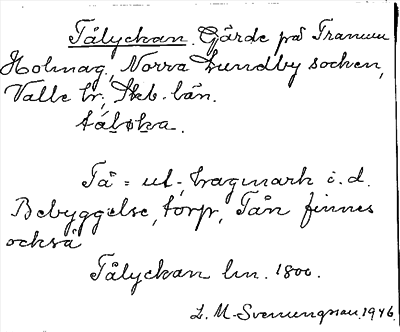 Tålyckan. Gärde på Tranum
Holmag, Norra Lundby socken,
Valle hr, Skb. län.
tåløka.
Tå = ut-, hagmark i. d.
Bebyggelse, torpr, Tån finnes
också
Tålyckan lm. 1800.
L. M. Svenungsson. 1946.